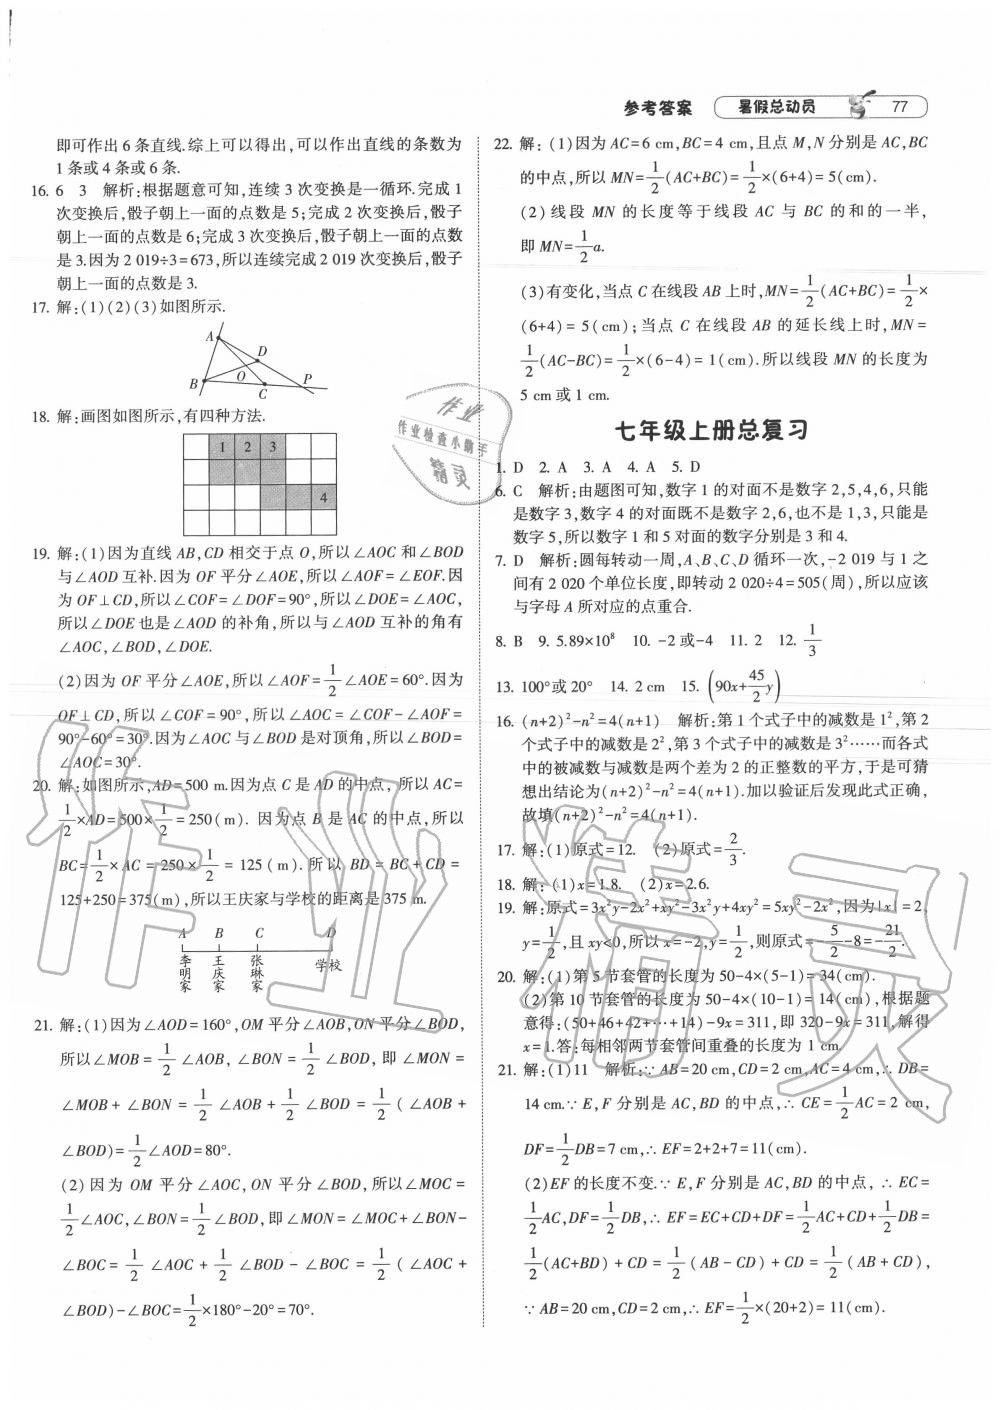 参考答案 暑假总动员 77
即可作出 6 条直线.综上可以得出,可以作出直线的条数为
1 条或 4 条或 6 条.
16. 6 3 解析:根据题意可知,连续 3 次变换是一循环.完成 1
次变换后,骰子朝上一面的点数是 5;完成 2 次变换后,骰子
朝上一面的点数是 6;完成 3 次变换后,骰子朝上一面的点数
是 3.因为 2 019÷3=673,所以连续完成 2 019 次变换后,骰子
朝上一面的点数是 3.
17. 解:(1)(2)(3)如图所示.
A
D
B O C P
18. 解:画图如图所示,有四种方法.
1 2 3
4
19. 解:(1)因为直线 AB,CD 相交于点 O,所以∠AOC 和∠BOD
与∠AOD 互补.因为 OF 平分∠AOE,所以∠AOF=∠EOF.因
为 OF⊥CD,所以∠COF=∠DOF=90°,所以∠DOE=∠AOC,
所以∠DOE 也是∠AOD 的补角,所以与∠AOD 互补的角有
∠AOC,∠BOD,∠DOE.
(2)因为 OF 平分∠AOE,所以∠AOF=1/2∠AOE=60°.因为
OF⊥CD,所以∠COF=90°,所以∠AOC=∠COF-∠AOF=
90°-60°=30°.因为∠AOC 与∠BOD 是对顶角,所以∠BOD=
∠AOC=30°.
20. 解:如图所示,AD=500 m.因为点 C 是 AD 的中点,所以 AC=
1/2×AD=500×1/2=250(m).因为点 B 是 AC 的中点,所以
BC=1/2×AC=250×1/2=125(m).所以 BD=BC+CD=
125+250=375(m),所以王庆家与学校的距离是 375 m.
A B C D
李明家 王庆家 张琳家 学校
21. 解:(1)因为∠AOD=160°,OM 平分∠AOB,ON 平分∠BOD,
所以∠MOB=1/2∠AOB,∠BON=1/2∠BOD,即∠MON=
∠MOB+∠BON=1/2∠AOB+1/2∠BOD=1/2(∠AOB+
∠BOD)=1/2∠AOD=80°.
(2)因为 OM 平分∠AOC,ON 平分∠BOD,所以∠MOC=
1/2∠AOC,∠BON=1/2∠BOD,即∠MON=∠MOC+∠BON-
∠BOC=1/2∠AOC+1/2∠BOD-∠BOC=1/2(∠AOC+
∠BOD)-∠BOC=1/2×180°-20°=70°.
22. 解:(1)因为 AC=6 cm,BC=4 cm,且点 M,N 分别是 AC,BC
的中点,所以 MN=1/2(AC+BC)=1/2×(6+4)=5(cm).
(2)线段 MN 的长度等于线段 AC 与 BC 的和的一半,
即 MN=1/2a.
(3)有变化,当点 C 在线段 AB 上时,MN=1/2(AC+BC)=1/2×
(6+4)=5(cm);当点 C 在线段 AB 的延长线上时,MN=
1/2(AC-BC)=1/2×(6-4)=1(cm).所以线段 MN 的长度为
5 cm 或 1 cm.
七年级上册总复习
1. D 2. A 3. A 4. A 5. D
6. C 解析:由题图可知,数字 1 的对面不是数字 2,5,4,6,只能
是数字 3,数字 4 的对面既不是数字 2,6,也不是 1,3,只能是
数字 5,所以数字 1 和 5 对面的数字分别是 3 和 4.
7. D 解析:圆每转动一周,A、B、C、D 循环一次,-2 019 与 1 之
间有 2 020 个单位长度,即转动 2 020÷4=505(周),所以应该
与字母 A 所对应的点重合.
8. B 9. 5.89×10⁸ 10. -2 或-4 11. 2 12. 1/3
13. 100°或 20° 14. 2 cm 15. (90x+45/2y)
16. (n+2)²-n²=4(n+1) 解析:第 1 个式子中的减数是 1²,第 2
个式子中的减数是 2²,第 3 个式子中的减数是 3²……而各式
中的被减数与减数是两个差为 2 的正整数的平方,于是可猜
想出结论为(n+2)²-n²=4(n+1).加以验证后发现此式正确,
故填(n+2)²-n²=4(n+1).
17. 解:(1)原式=12. (2)原式=2/3.
18. 解:(1)x=1.8. (2)x=2.6.
19. 解:原式=3x²y-2x²+xy²-3x²y+4xy²=5xy²-2x²,因为|x|=2,
y=1/2,且 xy<0,所以 x=-2,y=1/2,则原式=-5/2-8=-21/2.
20. 解:(1)第 5 节套管的长度为 50-4×(5-1)=34(cm).
(2)第 10 节套管的长度为 50-4×(10-1)=14(cm),根据题
意得:(50+46+42+…+14)-9x=311,即 320-9x=311,解得
x=1.答:每相邻两节套管间重叠的长度为 1 cm.
21. 解:(1)11 解析:∵AB=20 cm,CD=2 cm,AC=4 cm,∴DB=
14 cm.∵E,F 分别是 AC,BD 的中点,∴CE=1/2AC=2 cm,
DF=1/2DB=7 cm,∴EF=2+2+7=11(cm).
(2)EF 的长度不变.∵E,F 分别是 AC,BD 的中点,∴EC=
1/2AC,DF=1/2DB,∴EF=EC+CD+DF=1/2AC+CD+1/2DB=
1/2(AC+BD)+CD=1/2(AB-CD)+CD=1/2(AB+CD),
∵AB=20 cm,CD=2 cm,∴EF=1/2×(20+2)=11(cm).
作业
作业检查小助手
精灵
作业精灵